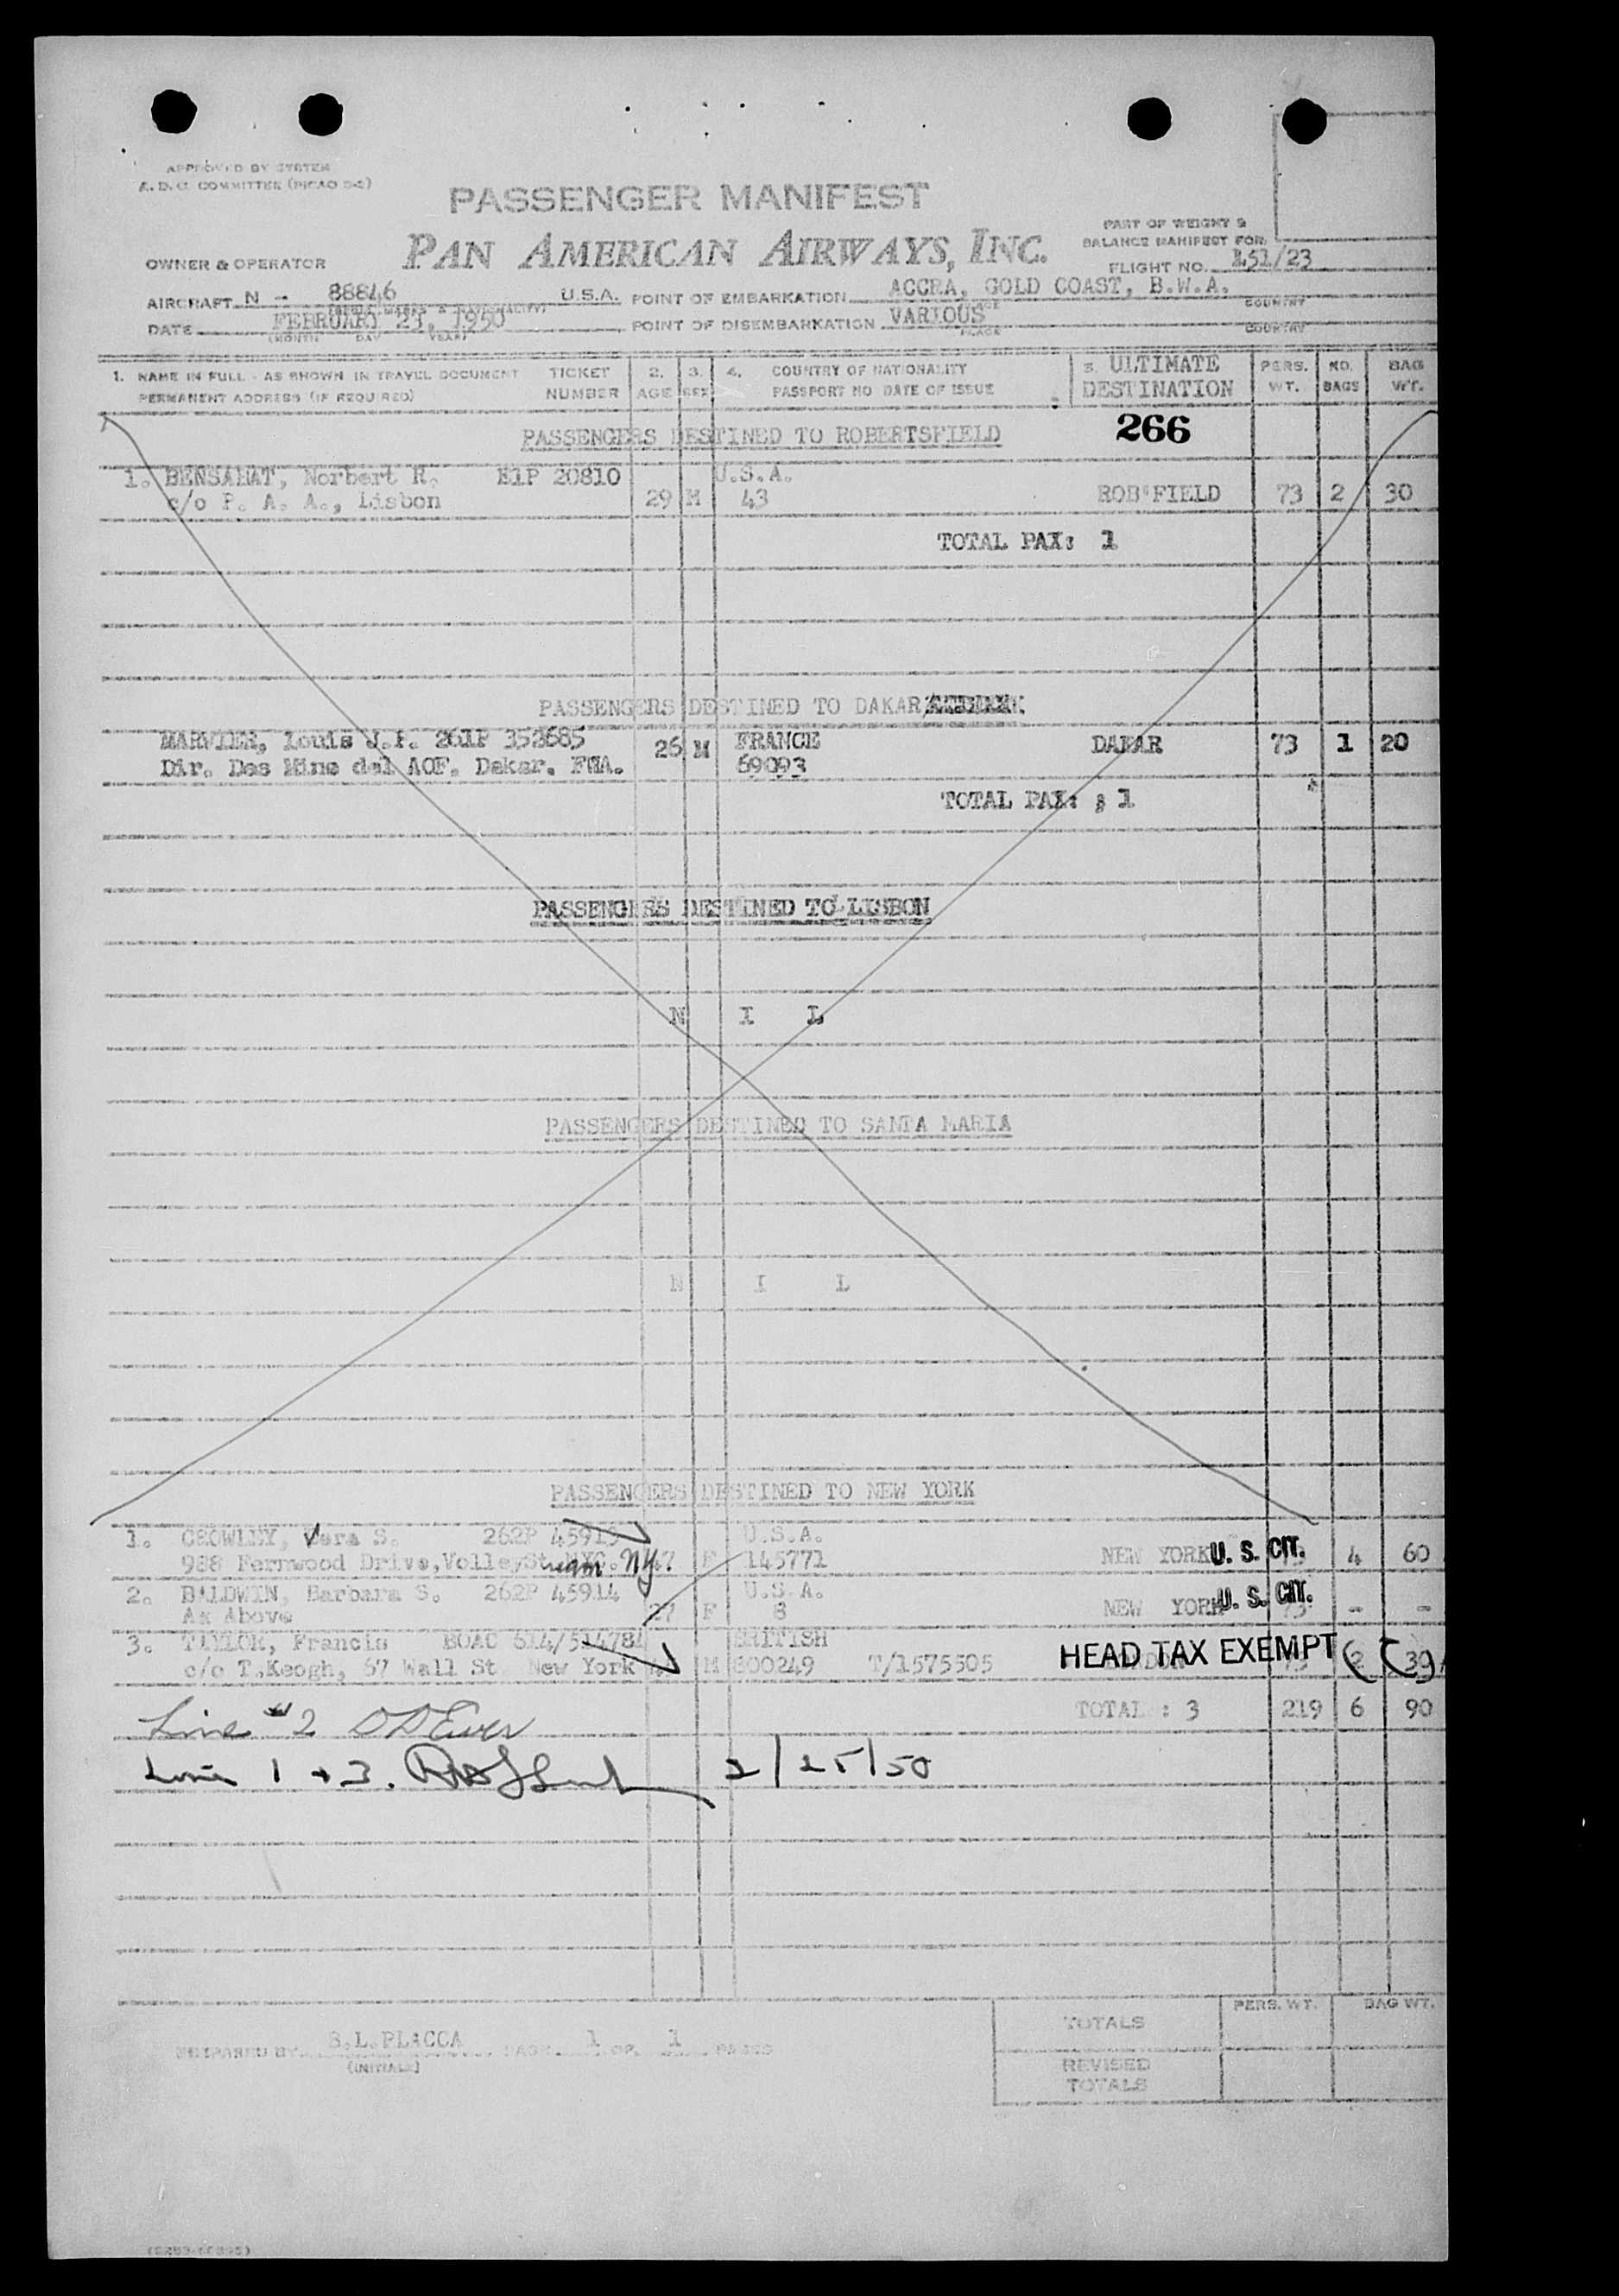 APPROVED BY SYSTEM
A.D.C. COMMITTEE (PICAO 2-2)
PASSENGER MANIFEST
PAN AMERICAN AIRWAYS, INC.
PART OF WEIGHT &
BALANCE MANIFEST FOR
OWNER & OPERATOR
FLIGHT NO. 151/23
AIRCRAFT N - 88846 U.S.A. POINT OF EMBARKATION ACCRA, GOLD COAST, B.W.A.
COUNTRY
DATE FEBRUARY 23, 1950 POINT OF DISEMBARKATION VARIOUS
(MONTH DAY YEAR) PLACE COUNTRY
1. NAME IN FULL - AS SHOWN IN TRAVEL DOCUMENT TICKET 2. 3. 4. COUNTRY OF NATIONALITY 5. ULTIMATE PERS. NO. BAG
PERMANENT ADDRESS (IF REQUIRED) NUMBER AGE SEX PASSPORT NO DATE OF ISSUE DESTINATION WT. BAGS WT.
PASSENGERS DESTINED TO ROBERTSFIELD 266
1. BENSAHAT, Norbert R. E1P 20810 U.S.A.
c/o P. A. A., Lisbon 29 M 43 ROB'FIELD 73 2 30
TOTAL PAX: 1
PASSENGERS DESTINED TO DAKAR
MARVIER, Louis J.P. 261P 352685 26 M FRANCE DAKAR 73 1 20
Dir. Des Mine del AOF. Dakar. FWA. 69093
TOTAL PAX: : 1
PASSENGERS DESTINED TO LISBON
N I L
PASSENGERS DESTINED TO SANTA MARIA
N I L
PASSENGERS DESTINED TO NEW YORK
1. CROWLEY, Vera S. 262P 45913 U.S.A.
988 Fernwood Drive, Valley Stream NY. 47 F 145771 NEW YORK U. S. CIT. 4 60
2. BALDWIN, Barbara S. 262P 45914 U.S.A.
As Above 27 F 8 NEW YORK U. S. CIT. 73 - -
3. TAYLOR, Francis BOAC 614/514784 BRITISH
c/o T.Keogh, 67 Wall St. New York M 800249 T/1575505 HEAD TAX EXEMPT 2 30
TOTAL : 3 219 6 90
Line #2
Line 1 + 3. 2/25/50
PERS. WT. BAG WT.
TOTALS
PREPARED BY S.L.PLACCA PAGE 1 OF 1 PAGES
(INITIALS)
REVISED
TOTALS